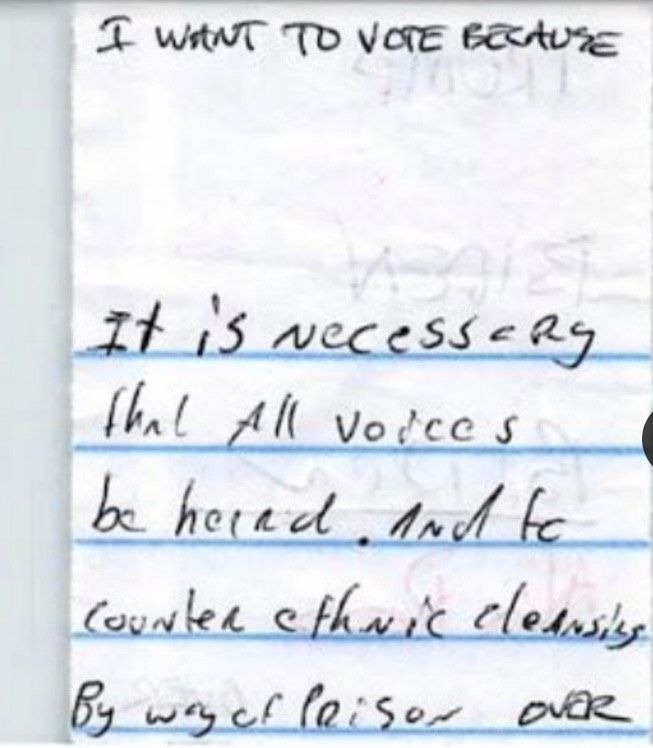 I WANT TO VOTE BECAUSE
It is necessary
that All voices
be heard. And to
counter ethnic cleansing
By way of Prison OVER